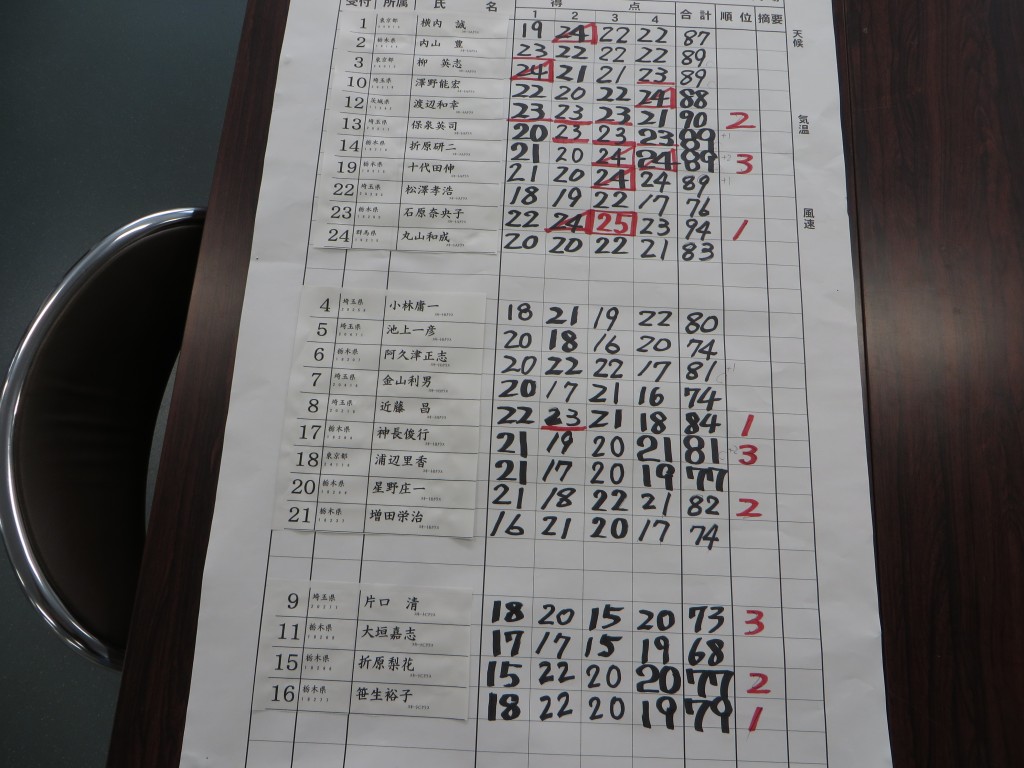 受付 所属 氏 名 得 点 合計 順位 摘要
1 2 3 4
1 東京都 横内 誠 19 24 22 22 87
2 栃木県 内山 豊 23 22 22 22 89
3 東京都 柳 英志 24 21 21 23 89
10 埼玉県 澤野能宏 22 20 22 24 88
12 茨城県 渡辺和幸 23 23 23 21 90 2
13 埼玉県 保泉英司 20 23 23 23 89 +1
14 栃木県 折原研二 21 20 24 24 89 +2 3
19 栃木県 十代田伸 21 20 24 24 89 +1
22 埼玉県 松澤孝浩 18 19 22 17 76
23 栃木県 石原奈央子 22 24 25 23 94 1
24 群馬県 丸山和成 20 20 22 21 83
4 埼玉県 小林庸一 18 21 19 22 80
5 埼玉県 池上一彦 20 18 16 20 74
6 栃木県 阿久津正志 20 22 22 17 81
7 埼玉県 金山利男 20 17 21 16 74
8 埼玉県 近藤 昌 22 23 21 18 84 1
17 栃木県 神長俊行 21 19 20 21 81 3
18 東京都 浦辺里香 21 17 20 19 77
20 栃木県 星野庄一 21 18 22 21 82 2
21 栃木県 増田栄治 16 21 20 17 74
9 埼玉県 片口 清 18 20 15 20 73 3
11 栃木県 大垣嘉志 17 17 15 19 68
15 栃木県 折原梨花 15 22 20 20 77 2
16 栃木県 笹生裕子 18 22 20 19 79 1
天候
気温
風速